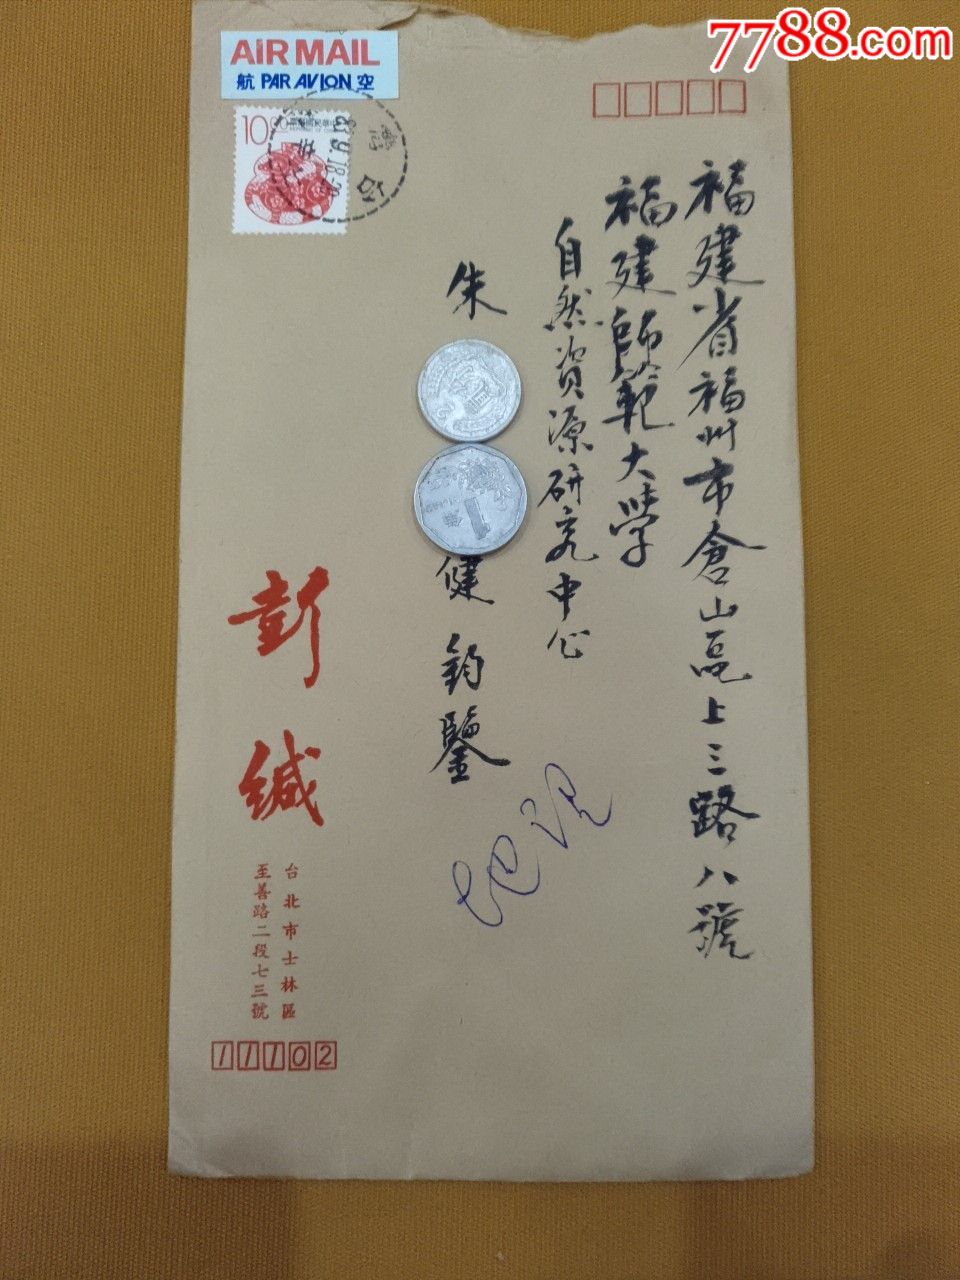 7788.com
AIR MAIL
航 PAR AVION 空
10.00
中華民國郵票
REPUBLIC OF CHINA
福建省福州市倉山區上三路八號
福建師範大學
自然資源研究中心
朱
健 鈞鑒
彭 緘
台北市士林區
至善路二段七三號
11102